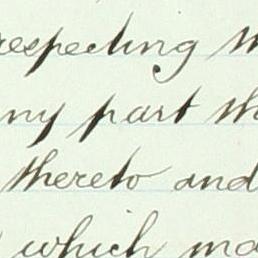 respecting
any part
thereto and
which